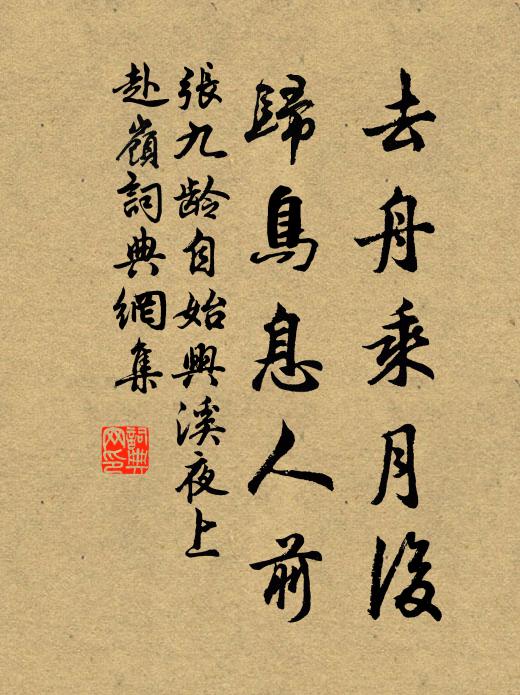 去舟乘月後
歸鳥息人前
張九龄自始興溪夜上
赴嶺詞典網集
詞典
网印